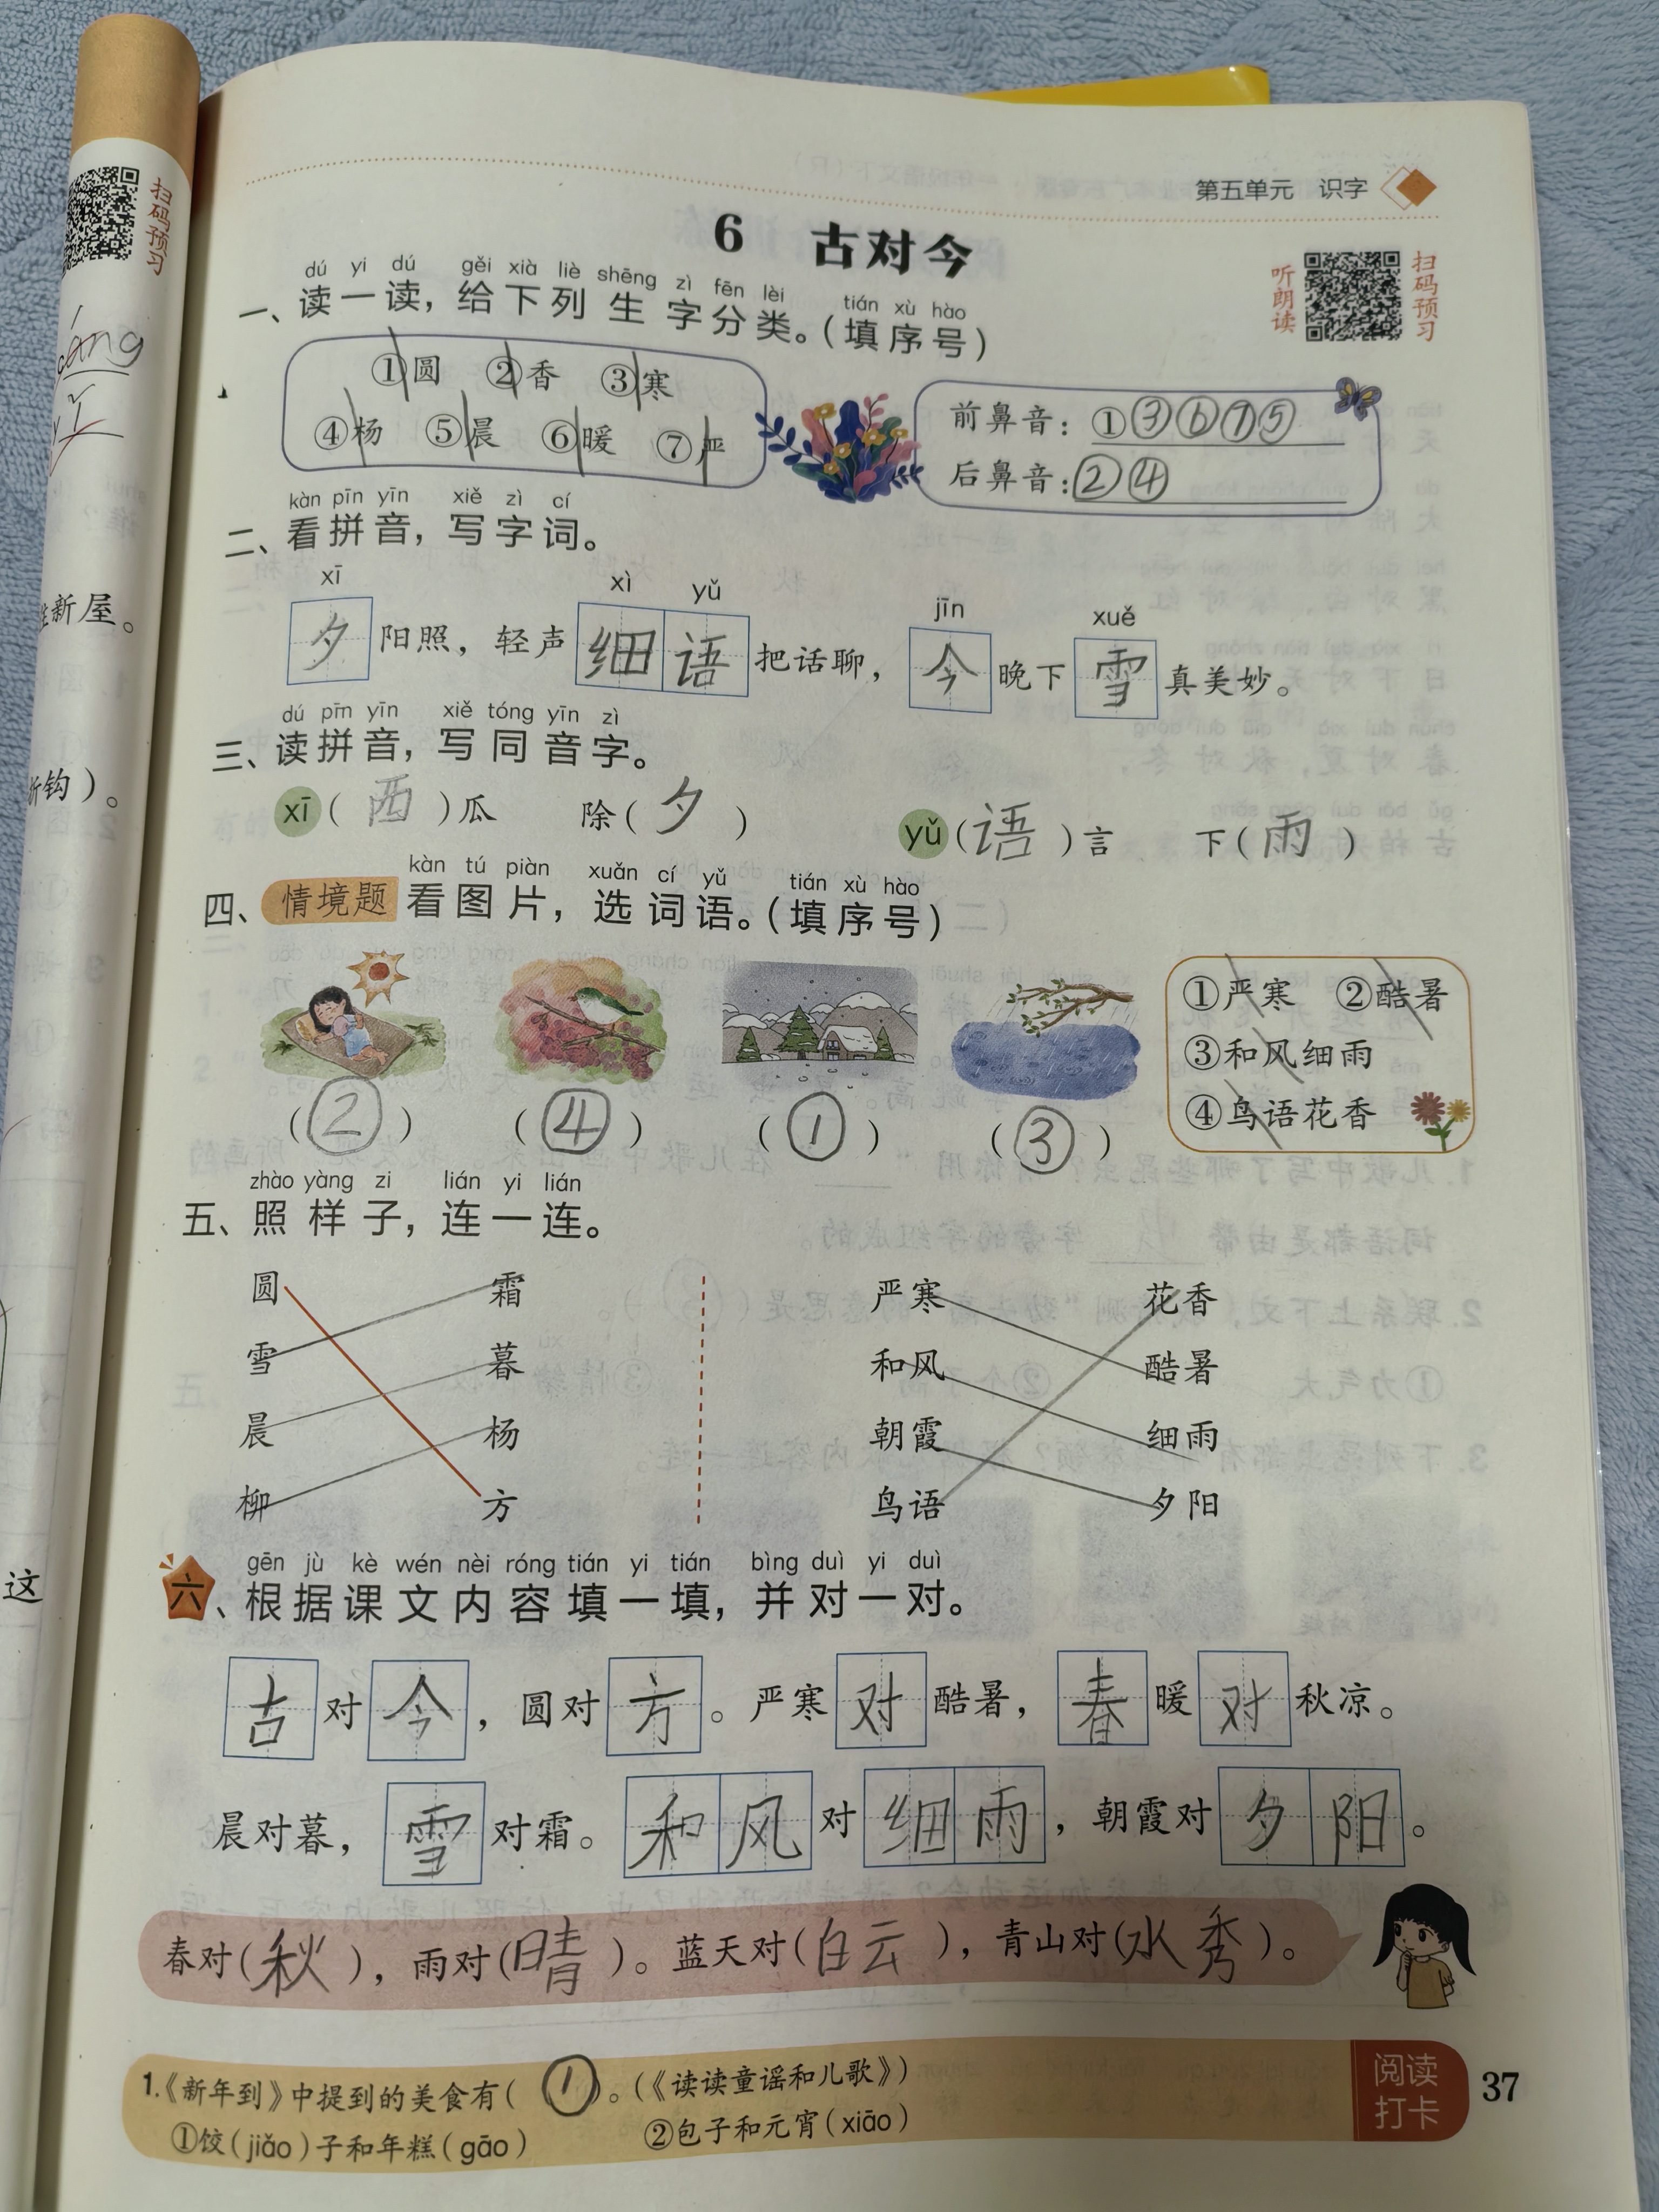 扫码预习
áng
新屋。
折钩)。
这
第五单元 识字
6 古对今
听朗读
扫码预习
dú yi dú gěi xià liè shēng zì fēn lèi tián xù hào
一、读一读，给下列生字分类。(填序号)
①圆 ②香 ③寒
④杨 ⑤晨 ⑥暖 ⑦严
前鼻音：①③⑥⑦⑤
后鼻音：②④
kàn pīn yīn xiě zì cí
二、看拼音，写字词。
xī xì yǔ jīn xuě
夕阳照，轻声细语把话聊，今晚下雪真美妙。
dú pīn yīn xiě tóng yīn zì
三、读拼音，写同音字。
xī(西)瓜 除(夕) yǔ(语)言 下(雨)
kàn tú piàn xuǎn cí yǔ tián xù hào
四、情境题 看图片，选词语。(填序号)
①严寒 ②酷暑
③和风细雨
④鸟语花香
(②) (④) (①) (③)
zhào yàng zi lián yi lián
五、照样子，连一连。
圆 霜 严寒 花香
雪 暮 和风 酷暑
晨 杨 朝霞 细雨
柳 方 鸟语 夕阳
gēn jù kè wén nèi róng tián yi tián bìng duì yi duì
六、根据课文内容填一填，并对一对。
古对今，圆对方。严寒对酷暑，春暖对秋凉。
晨对暮，雪对霜。和风对细雨，朝霞对夕阳。
春对(秋)，雨对(晴)。蓝天对(白云)，青山对(水秀)。
1.《新年到》中提到的美食有(①)。(《读读童谣和儿歌》)
①饺(jiǎo)子和年糕(gāo) ②包子和元宵(xiāo)
阅读打卡
37